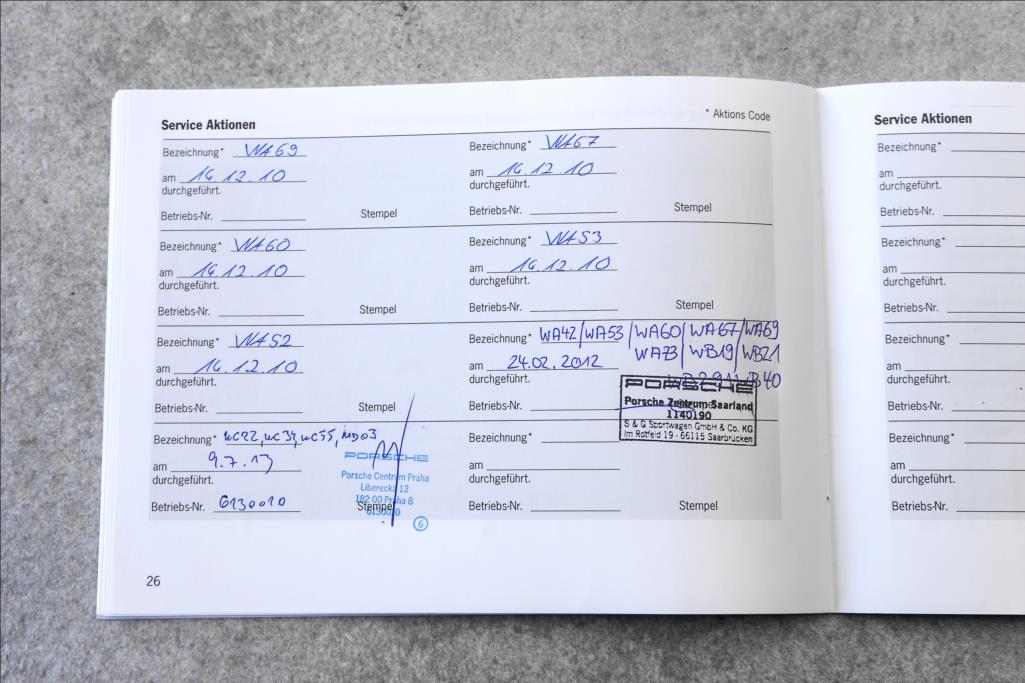 Service Aktionen
* Aktions Code
Bezeichnung* WA69
am 16.12.10
durchgeführt.
Betriebs-Nr. Stempel
Bezeichnung* WA67
am 16.12.10
durchgeführt.
Betriebs-Nr. Stempel
Bezeichnung* WA60
am 16.12.10
durchgeführt.
Betriebs-Nr. Stempel
Bezeichnung* WA53
am 16.12.10
durchgeführt.
Betriebs-Nr. Stempel
Bezeichnung* WA52
am 16.12.10
durchgeführt.
Betriebs-Nr. Stempel
Bezeichnung* WA42/WA53/WA60/WA67/WA69
WA73/WB19/WB21
am 24.02.2012
durchgeführt. WB40
PORSCHE
Porsche Zentrum Saarland
1140190
S & G Sportwagen GmbH & Co. KG
Im Rotfeld 19 - 66115 Saarbrücken
Betriebs-Nr.
Bezeichnung* WC22, WC34, WC55, WD03
am 9.7.13
durchgeführt.
Betriebs-Nr. 6130010 Stempel
PORSCHE
Porsche Centrum Praha
Liberecká 12
182 00 Praha 8
6130010
6
Bezeichnung*
am
durchgeführt.
Betriebs-Nr. Stempel
26
Service Aktionen
Bezeichnung*
am
durchgeführt.
Betriebs-Nr.
Bezeichnung*
am
durchgeführt.
Betriebs-Nr.
Bezeichnung*
am
durchgeführt.
Betriebs-Nr.
Bezeichnung*
am
durchgeführt.
Betriebs-Nr.